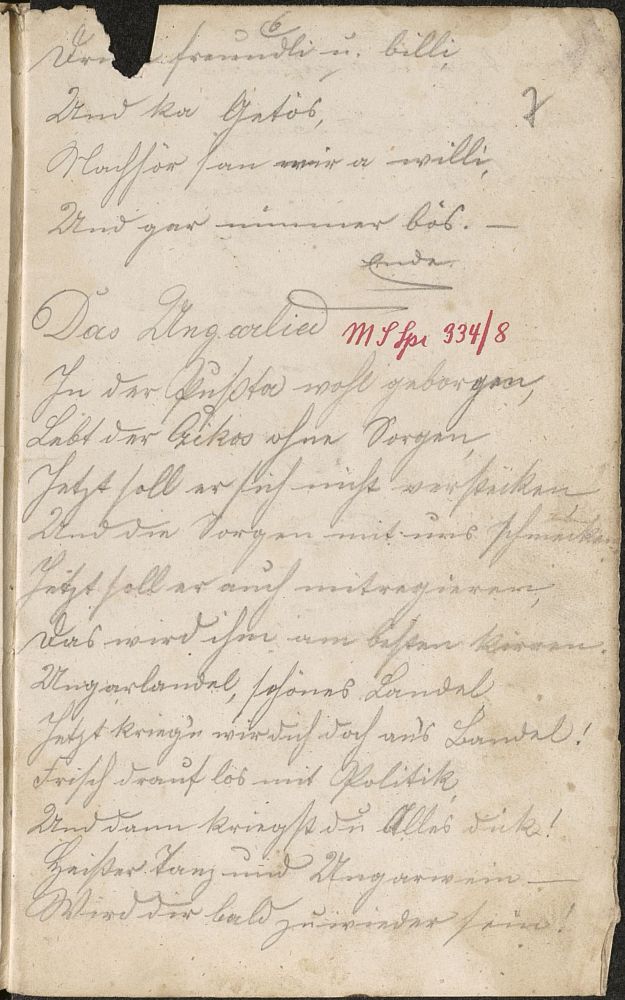 6
freundli u. billi,
7
Und ka Getös,
Nachhör san wir a willi,
Und gar nimmer bös. —
Ende.
Das Ungarlied
MS Spr 334/8
In der Pußta wohl geborgen,
Lebt der Czikos ohne Sorgen,
Jetzt soll er sich nicht verstecken
Und die Sorgen mit uns schmecken
Jetzt soll er auch mitregieren,
Das wird ihm am besten kirren.
Ungarlandel, schönes Landel
Jetzt kriegn wir dich doch ans Bandel!
Frisch drauf los mit Politik,
Und dann kriegst du Alles dick!
Heißer Tanz und Ungarwein —
Wird dir bald zuwieder sein!